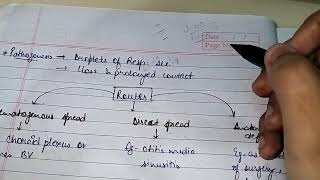 Date
Page N
* Pathogenesis → Droplets of Resp. sec.
→ Close & prolonged contact
Routes
Hematogenous spread Direct spread
choroid plexus or Eg- otitis media
BV sinusitis
of surgery,